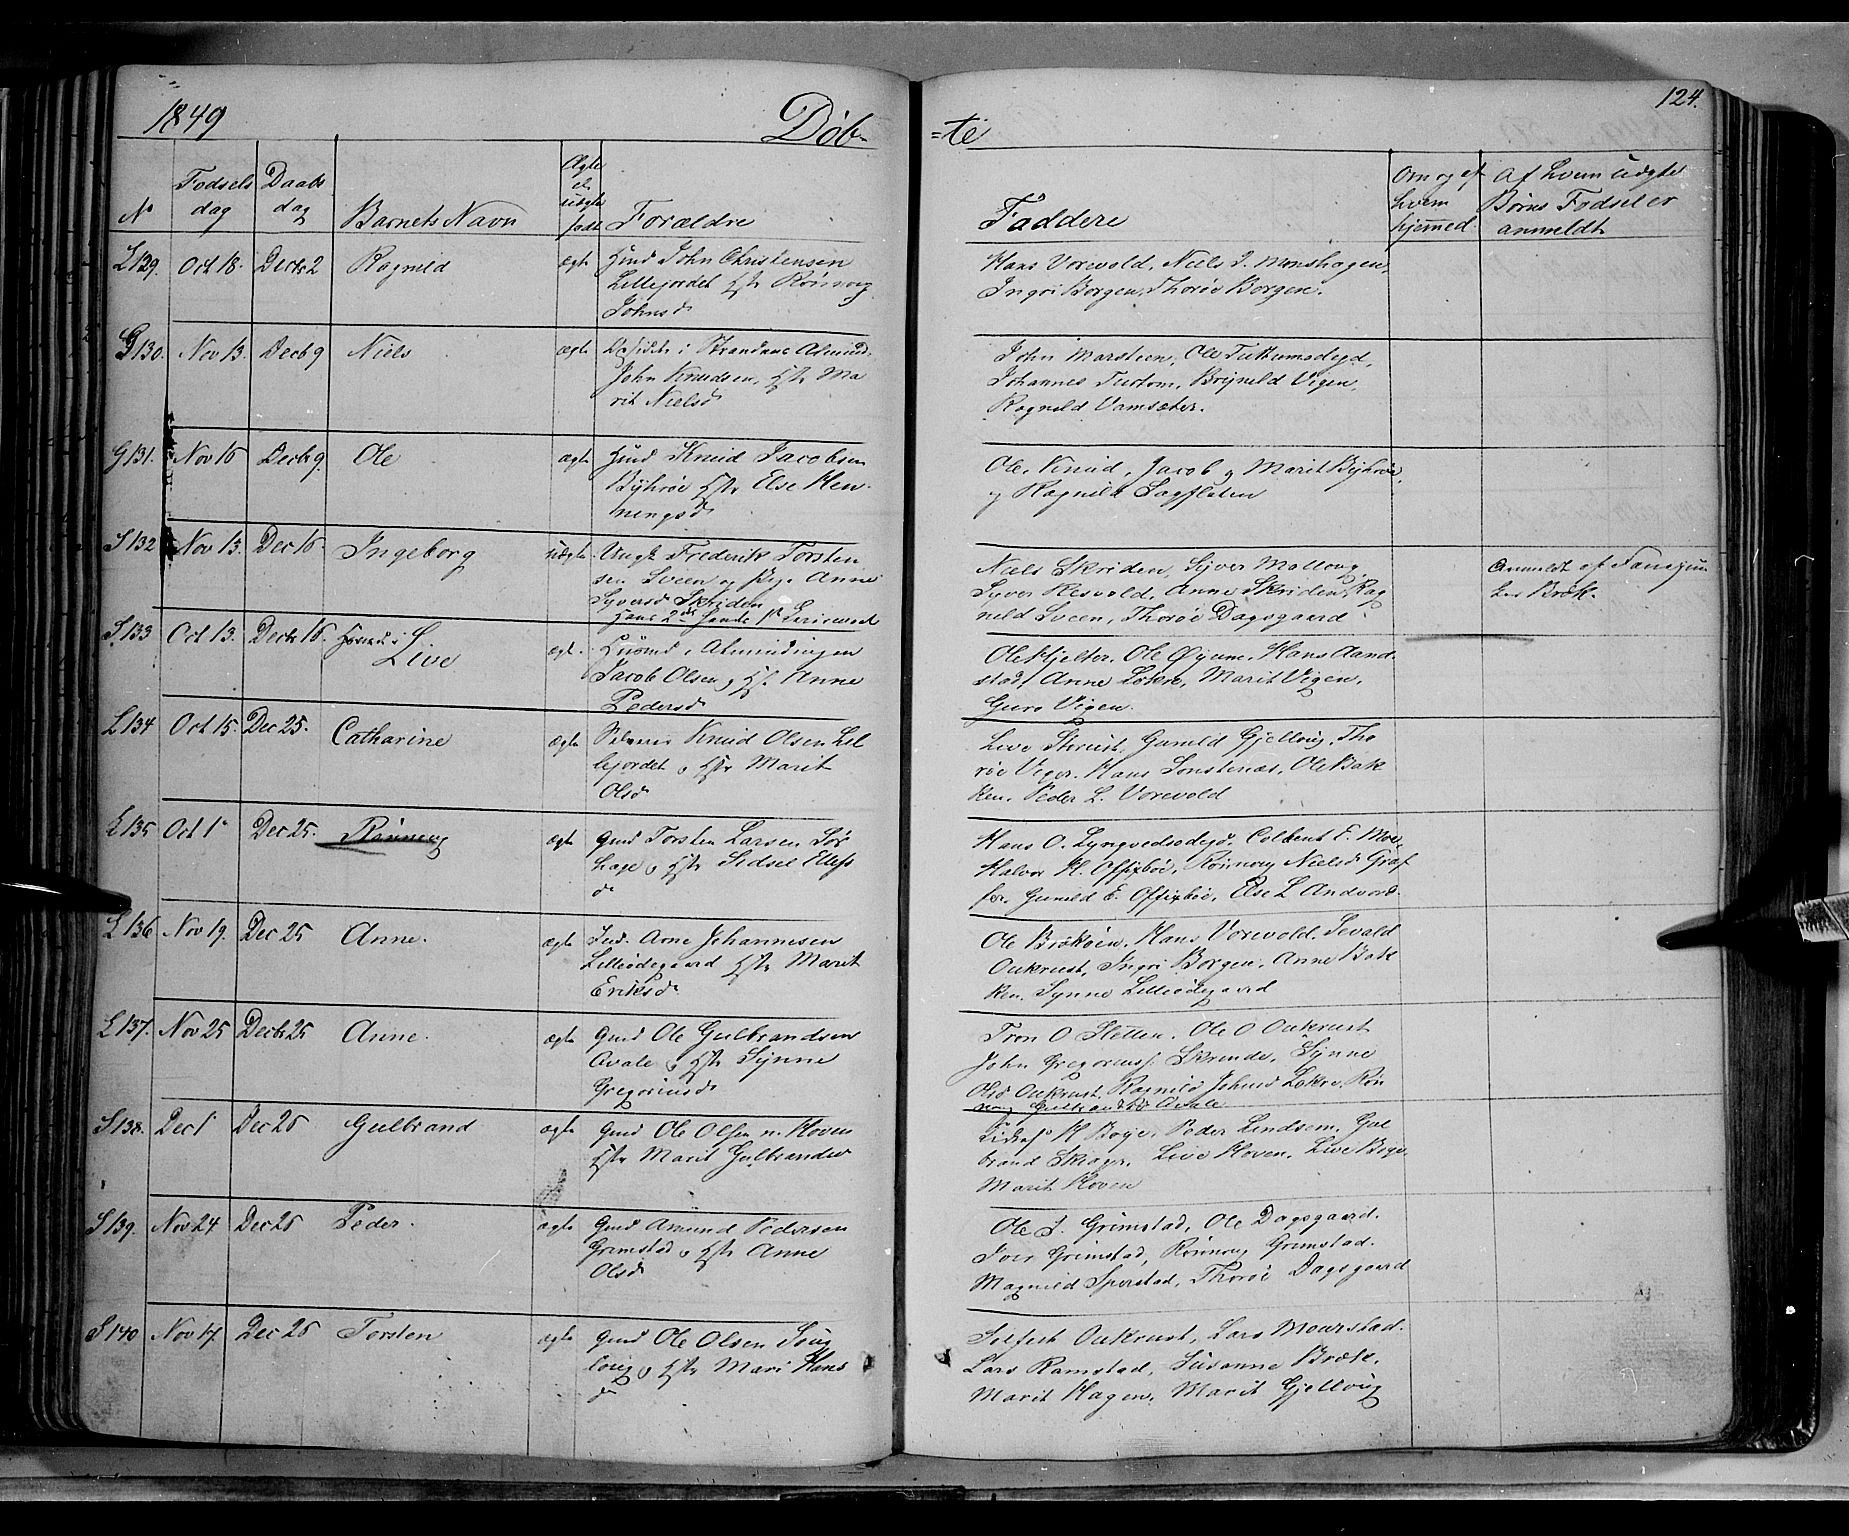 1849 Døb- =te 124.
No Fødsels dag Daabs dag Barnets Navn Ægte el. uægte født Forældre Faddere Om og af hvem hjemmed. Af hvem uægte Børns Fødsel er anmeldt
L 129. Oct 18. Decbr 2 Ragnild ægte Huusd John Christensen
Lillejordet Hstr Rønnoug
Johnsd
Hans Vorevold, Niels J. Monshagen,
Ingri Borgen, Thorøe Borgen.
G 130. Nov 13. Decb 9 Niels ægte i Strandens Almind.
John Knudsen, Hstr Ma
rit Nielsd
John Marsteen, Ole
Johannes Brynild Vigen,
Ragnild Vamsæter.
G 131. Nov 16 Decbr 9 Ole ægte Huusd Knud Jacobsen
Byhrøe Hstr Else Hen-
ningsd
Ole, Knud, Jacob og Marit Byhrøe,
og Ragnild Sagflaten
S 132 Nov 13. Dec 16. Ingeborg uægte Ungk Frederik Torsten
sen Sveen og Pige Anne
Syversd Skriden
Hans 2de hendes 1ste Leiermaal
Niels Skriden, Syver
Syver Resvold, Anne Skriden, Rag
nild Sveen, Thorøe Dagsgaard
Anmeldt af
Bræk.
S 133 Oct 13. Decbr 16. Live ægte. Huusmd i Almindingen
Jacob Olsen og H. Anne
Pedersd
Ole Kjelter, Ole Øyum, Hans Aand
stad, Anne Løkre, Marit Vigen,
Guro Vigen.
L 134 Oct 15. Dec 25. Catharine ægte Knud Olsen Lil
lejordet og Hstr Marit
Olsd
Live Skrust, Gunild Gjelloug, Tho
røe Viger. Hans Sonstenæs, Ole Bak
ken, Peder L. Vorevold
L 135 Oct 1 Dec 25. Rønnoug ægte Gmd Torsten Larsen Sør
hage og Hstr Sidsel Ellefs
d.
Hans O. Lyngvedsødegd. Colbent E. Moe,
Halvor H. Offixbøe, Rønnoug Nielsd Graf
fer, Gunild E. Offixbøe, Else L Andvord.
L 136 Nov 19. Dec 25 Anne. ægte Ind. Arne Johannesen
Lilleødegaard Hstr Marit
Eriksd
Ole Hans Vorevold, Sevald
Oukrust, Ingri Borgen, Anne Bak
ken, Synne Lilleødegaard
L 137. Nov 25 Decbr 25 Anne. ægte Gmd Ole Gulbrandsen
Avale og Hstr Synne
Gregoriusd
Tron O Sletten, Ole O Oukrust
John Gregoriuss. Skrinde, Synne
Olsd Oukrust, Ragnild Johnsd Løkre, Røn
noug Gulbrandsd Avale
S 138. Dec 1 Dec 26 Gulbrand ægte Gmd Ole Olsen n. Hoven
Hstr Marit Gulbrandsd
H Bøye, Peder Lindsem, Gul
brand Skiager, Live Hoven, Live Bøye,
Marit Hoven
S 139. Nov 24 Dec 26 Peder. ægte Gmd Amund Pedersen
Grimstad og Hstr Anne
Olsd
Ole J. Grimstad, Ole Dagsgaard.
Iver Grimstad, Rønnoug Grimstad.
Magnild Sperstad, Thorøe Dagsgaard
S 140 Nov 17. Dec 26 Torsten ægte Gmd Ole Olsen
og Hstr Mari Hans
d
Oukrust, Lars Mourstad.
Lars Ramstad, Susanne Bræk,
Marit Hagen, Marit Gjelloug